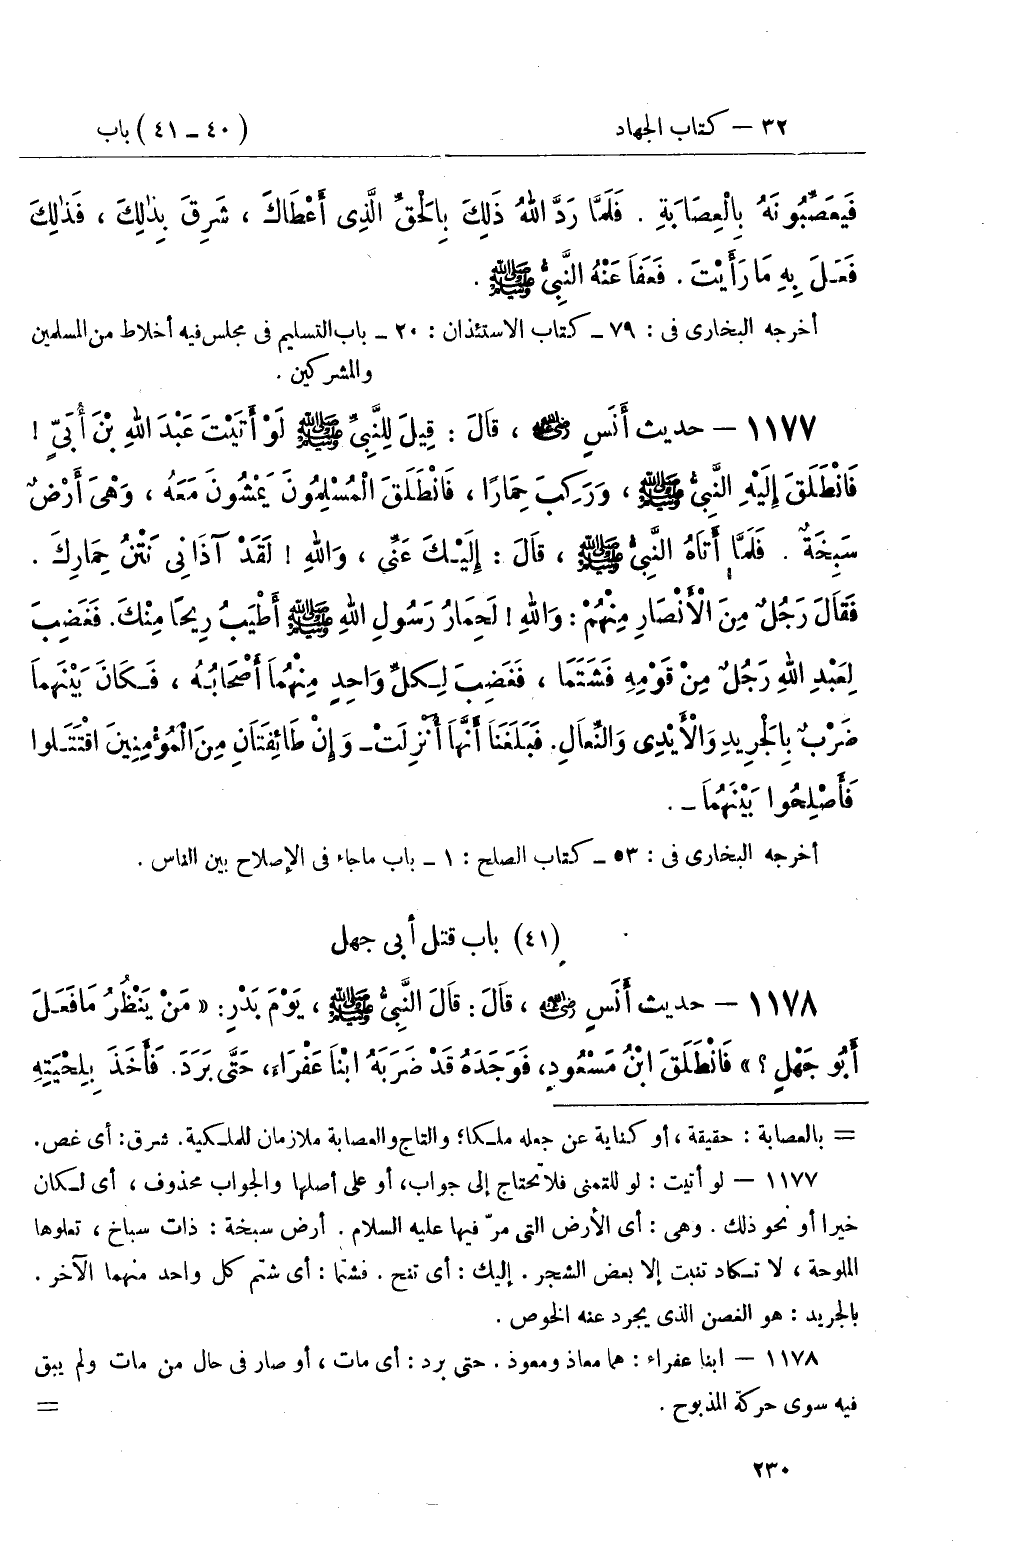 ٣٢ – كتاب الجهاد (٤٠ – ٤١) باب
فَيُعَصِّبُونَهُ بِالْعِصَابَةِ . فَلَمَّا رَدَّ اللهُ ذَلِكَ بِالْحَقِّ الَّذِى أَعْطَاكَ ، شَرِقَ بِذٰلِكَ ، فَذٰلِكَ
فَعَلَ بِهِ مَا رَأَيْتَ . فَعَفَا عَنْهُ النَّبِىُّ ﷺ .
أخرجه البخارى فى : ٧٩ – كتاب الاستئذان : ٢٠ – باب التسليم فى مجلس فيه أخلاط من المسلمين
والمشركين .
١١٧٧ – حديث أَنَسٍ رضي الله عنه ، قَالَ : قِيلَ لِلنَّبِىِّ ﷺ لَوْ أَتَيْتَ عَبْدَ اللهِ بْنَ أُبَيٍّ !
فَانْطَلَقَ إِلَيْهِ النَّبِىُّ ﷺ ، وَرَكِبَ حِمَارًا ، فَانْطَلَقَ الْمُسْلِمُونَ يَمْشُونَ مَعَهُ ، وَهْىَ أَرْضٌ
سَبِخَةٌ . فَلَمَّا أَتَاهُ النَّبِىُّ ﷺ ، قَالَ : إِلَيْكَ عَنِّى ، وَاللهِ ! لَقَدْ آذَانِى نَتْنُ حِمَارِكَ .
فَقَالَ رَجُلٌ مِنَ الْأَنْصَارِ مِنْهُمْ : وَاللهِ ! لَحِمَارُ رَسُولِ اللهِ ﷺ أَطْيَبُ رِيحًا مِنْكَ. فَغَضِبَ
لِعَبْدِ اللهِ رَجُلٌ مِنْ قَوْمِهِ فَشَتَمَا ، فَغَضِبَ لِكلِّ وَاحِدٍ مِنْهُمَا أَصْحَابُهُ ، فَكَانَ بَيْنَهُما
ضَرْبٌ بِالْجَرِيدِ وَالْأَيْدِى وَالنِّعَالِ. فَبَلَغَنَا أَنَّهَا أُنْزِلَتْ – وَإِنْ طَائِفَتَانِ مِنَ الْمُؤْمِنِينَ اقْتَتَلوا
فَأَصْلِحُوا بَيْنَهُمَا – .
أخرجه البخارى فى : ٥٣ – كتاب الصلح : ١ – باب ماجاء فى الإصلاح بين الناس .
(٤١) باب قتل أبى جهل
١١٧٨ – حديث أَنَسٍ رضي الله عنه ، قَالَ : قَالَ النَّبِىُّ ﷺ ، يَوْمَ بَدْرٍ : « مَنْ يَنْظُرُ مَا فَعَلَ
أَبُو جَهْلٍ ؟ » فَانْطَلَقَ ابْنُ مَسْعُودٍ، فَوَجَدَهُ قَدْ ضَرَبَهُ ابْنَا عَفْرَاء، حَتَّى بَرَدَ. فَأَخَذَ بِلِحْيَتِهِ
= بالعصابة : حقيقة ، أو كناية عن جعله ملكا؛ والتاج والعصابة ملازمان للملكية. شرق: أى غص.
١١٧٧ – لو أتيت : لو للتمنى فلا تحتاج إلى جواب، أو على أصلها والجواب محذوف ، أى لكان
خيرا أو نحو ذلك . وهى : أى الأرض التى مرّ فيها عليه السلام . أرض سبخة : ذات سباخ ، تعلوها
الملوحة ، لا تكاد تنبت إلا بعض الشجر . إليك : أى تنح . فشتما : أى شتم كل واحد منهما الآخر .
بالجريد : هو الغصن الذى يجرد عنه الخوص .
١١٧٨ – ابنا عفراء : هما معاذ ومعوذ . حتى برد : أى مات ، أو صار فى حال من مات ولم يبق
فيه سوى حركة المذبوح . =
٢٣٠